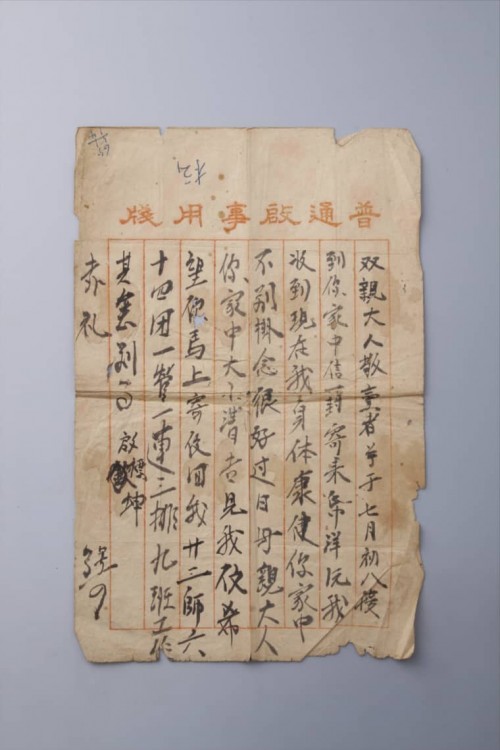 普通啟事用牋
双親大人敬禀者 于七月初八接
到你家中信一封寄来 洋元我
收到現在我身体康健你家中
不别掛念很好过日母親大人
你家中大小 見我 希
望 馬上寄 回我廿三師六
十四团一營一連三排九班工作
其 别 
赤礼
啟 坤